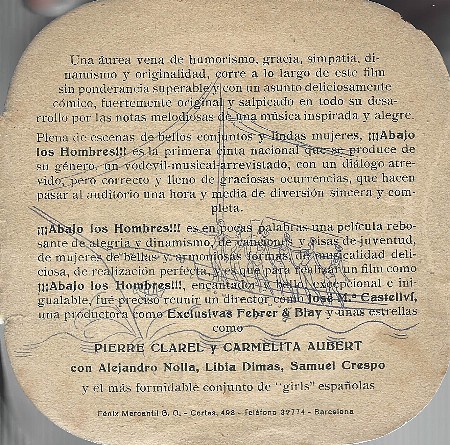 Una áurea vena de humorismo, gracia, simpatía, di-
namismo y originalidad, corre a lo largo de este film
sin ponderancia superable y con un asunto deliciosamente
cómico, fuertemente original y salpicado en todo su desa-
rrollo por las notas melodiosas de una música inspirada y alegre.
Plena de escenas de bellos conjuntos y lindas mujeres, ¡¡¡Abajo
los Hombres!!! es la primera cinta nacional que se produce de
su género, un vodevil-musical-arrevistado, con un diálogo atre-
vido, pero correcto y lleno de graciosas ocurrencias, que hacen
pasar al auditorio una hora y media de diversión sincera y com-
pleta.
¡¡¡Abajo los Hombres!!! es en pocas palabras una película rebo-
sante de alegría y dinamismo, de canciones y risas de juventud,
de mujeres de bellas y armoniosas formas, de musicalidad deli-
ciosa, de realización perfecta, y es que para realizar un film como
¡¡¡Abajo los Hombres!!!, encantador y bello, excepcional e ini-
gualable, fué preciso reunir un director como José M.ª Castellví,
una productora como Exclusivas Febrer & Blay y unas estrellas
como
PIERRE CLAREL y CARMELITA AUBERT
con Alejandro Nolla, Libia Dimas, Samuel Crespo
y el más formidable conjunto de "girls" españolas
Fénix Mercantil G. O. - Cortes, 498 - Teléfono 32774 - Barcelona